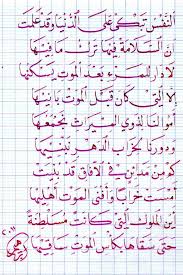 النفس تبكي على الدنيا وقد علمت
ان السلامة فيها ترك ما فيها
لا دار للمرء بعد الموت يسكنها
الا التي كان قبل الموت بانيها
أموالنا لذوي الميراث نجمعها
ودورنا لخراب الدهر نبنيها
كم من مدائن في الآفاق قد بنيت
أمست خرابا وأفنى الموت أهليها
أين الملوك التي كانت مسلطنة
حتى سقاها بكأس الموت ساقيها